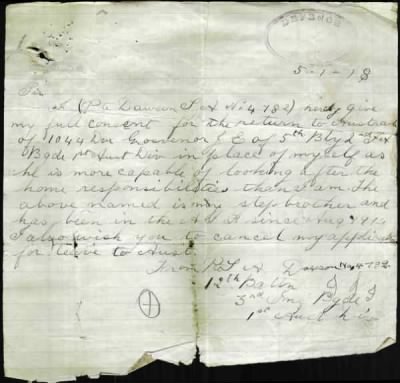 5-1-18
Sir
I (Pte Dawson S A No 4782) hereby give
my full consent for the return to Australia
of 1044 Dvr Grosvenor J E of 5th By 2nd F A
Bgde 1st Aust Div in place of myself as
he is more capable of looking after the
home responsibilities than I am. The
above named is my step brother and
has been in the A I F since Aug 1914
I also wish you to cancel my application
for leave to Aust.
From Pte S A Dawson No 4782
12th Batln
3rd Inf Bgde
1st Aust Div